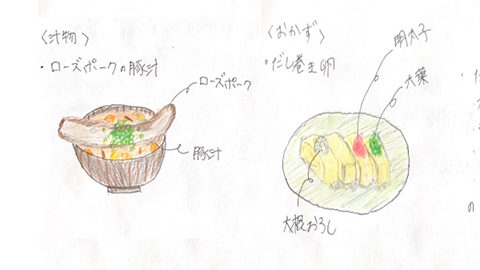 〈汁物〉
・ローズポークの豚汁
ローズポーク
豚汁
〈おかず〉
・だし巻き卵
明太子
大葉
大根おろし
の